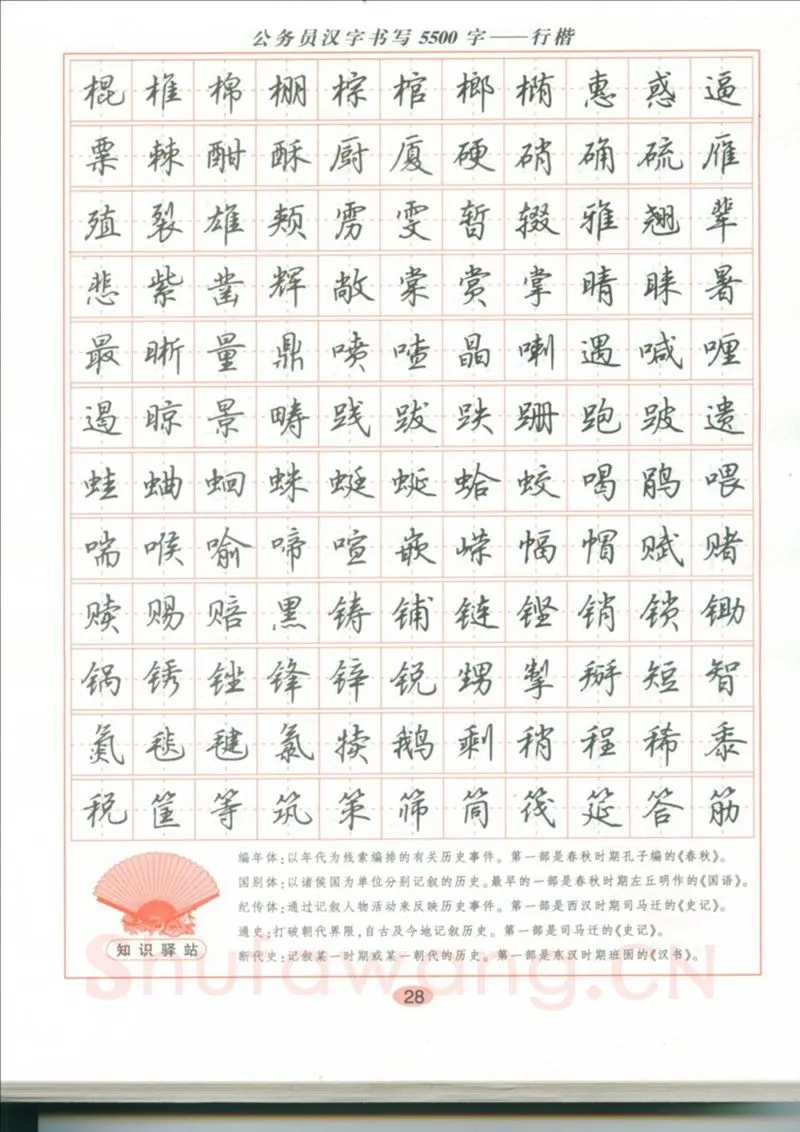 公务员汉字书写5500字——行楷
棍椎棉棚棕棺榔椭惠惑逼
粟棘酣酥厨厦硬硝确硫雁
殖裂雄颊雳雯暂辍雅翘辈
悲紫凿辉敞棠赏掌晴睐暑
最晰量鼎喷喳晶喇遇喊喱
遏晾景畴践跋跌跚跑跛遗
蛙蛐蛔蛛蜓蜒蛤蛟喝鹃喂
喘喉喻啼喧嵌嵘幅帽赋赌
赎赐赔黑铸铺链铿销锁锄
锅锈锉锋锌锐甥掣掰短智
氮毯毽氯犊鹅剩稍程稀黍
税筐等筑策筛筒筏筵答筋
编年体:以年代为线索编排的有关历史事件。第一部是春秋时期孔子编的《春秋》。
国别体:以诸侯国为单位分别记叙的历史。最早的一部是春秋时期左丘明作的《国语》。
纪传体:通过记叙人物活动来反映历史事件。第一部是西汉时期司马迁的《史记》。
通史:打破朝代界限,自古及今地记叙历史。第一部是司马迁的《史记》。
知识驿站
断代史:记叙某一时期或某一朝代的历史。第一部是东汉时期班固的《汉书》。
Shufawang.CN
28